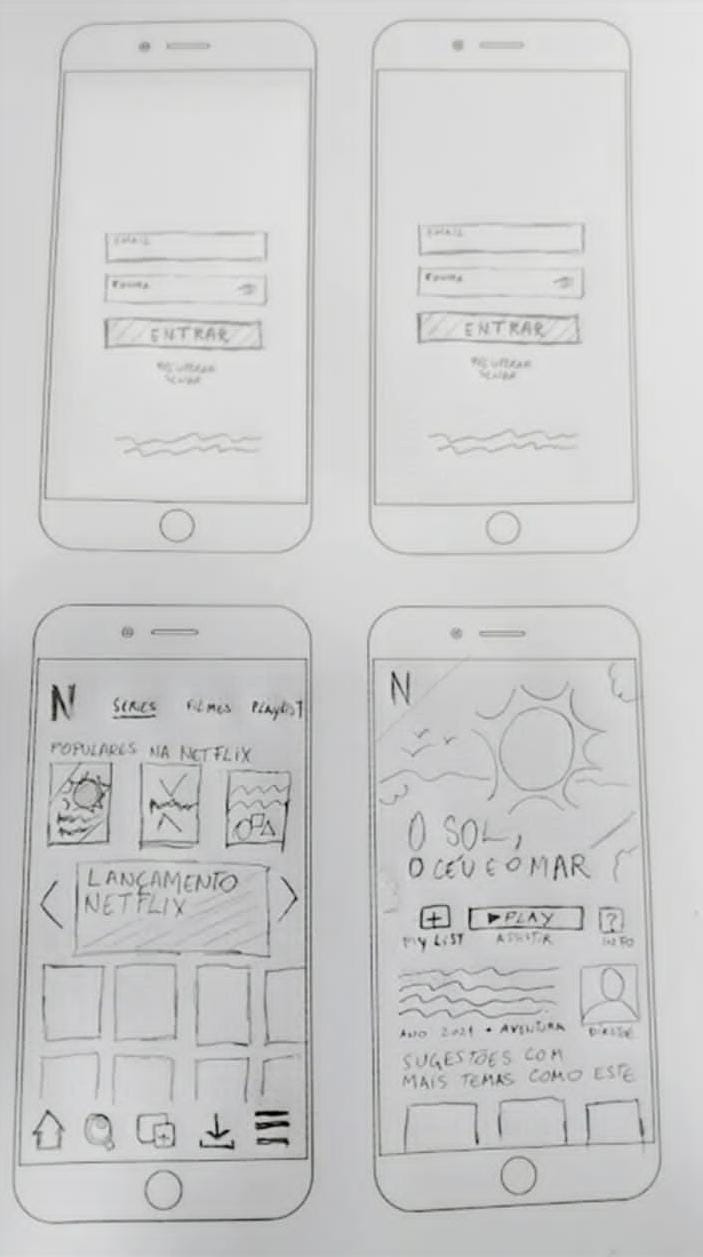 EMAIL
SENHA
ENTRAR
RECUPERAR
SENHA
EMAIL
SENHA
ENTRAR
RECUPERAR
SENHA
N
SERIES FILMES PLAYLIST
POPULARES NA NETFLIX
LANÇAMENTO
NETFLIX
N
O SOL,
O CÉU E O MAR
+ ▶PLAY ?
MY LIST ASSISTIR INFO
ANO 2021 • AVENTURA
SUGESTÕES COM
MAIS TEMAS COMO ESTE